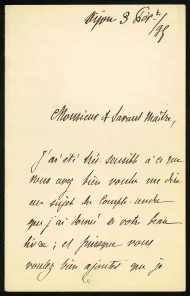 Dijon 3 Févr
/95
Monsieur & Savant Maître,
J'ai été très sensible à ce que
vous avez bien voulu me dire
au sujet du Compte-rendu
que j'ai donné de votre beau
livre ; et puisque vous
voulez bien ajouter que je